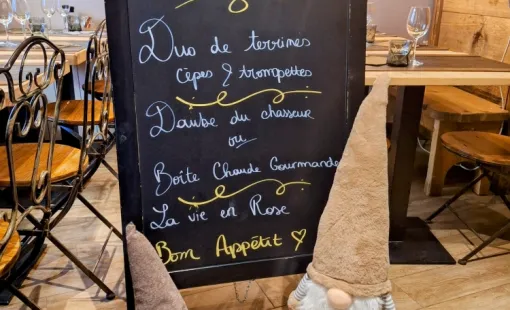 Duo de terrines
cèpes & trompettes
Daube du chasseur
ou
Boîte Chaude Gourmande
La vie en Rose
Bom Appétit ♡